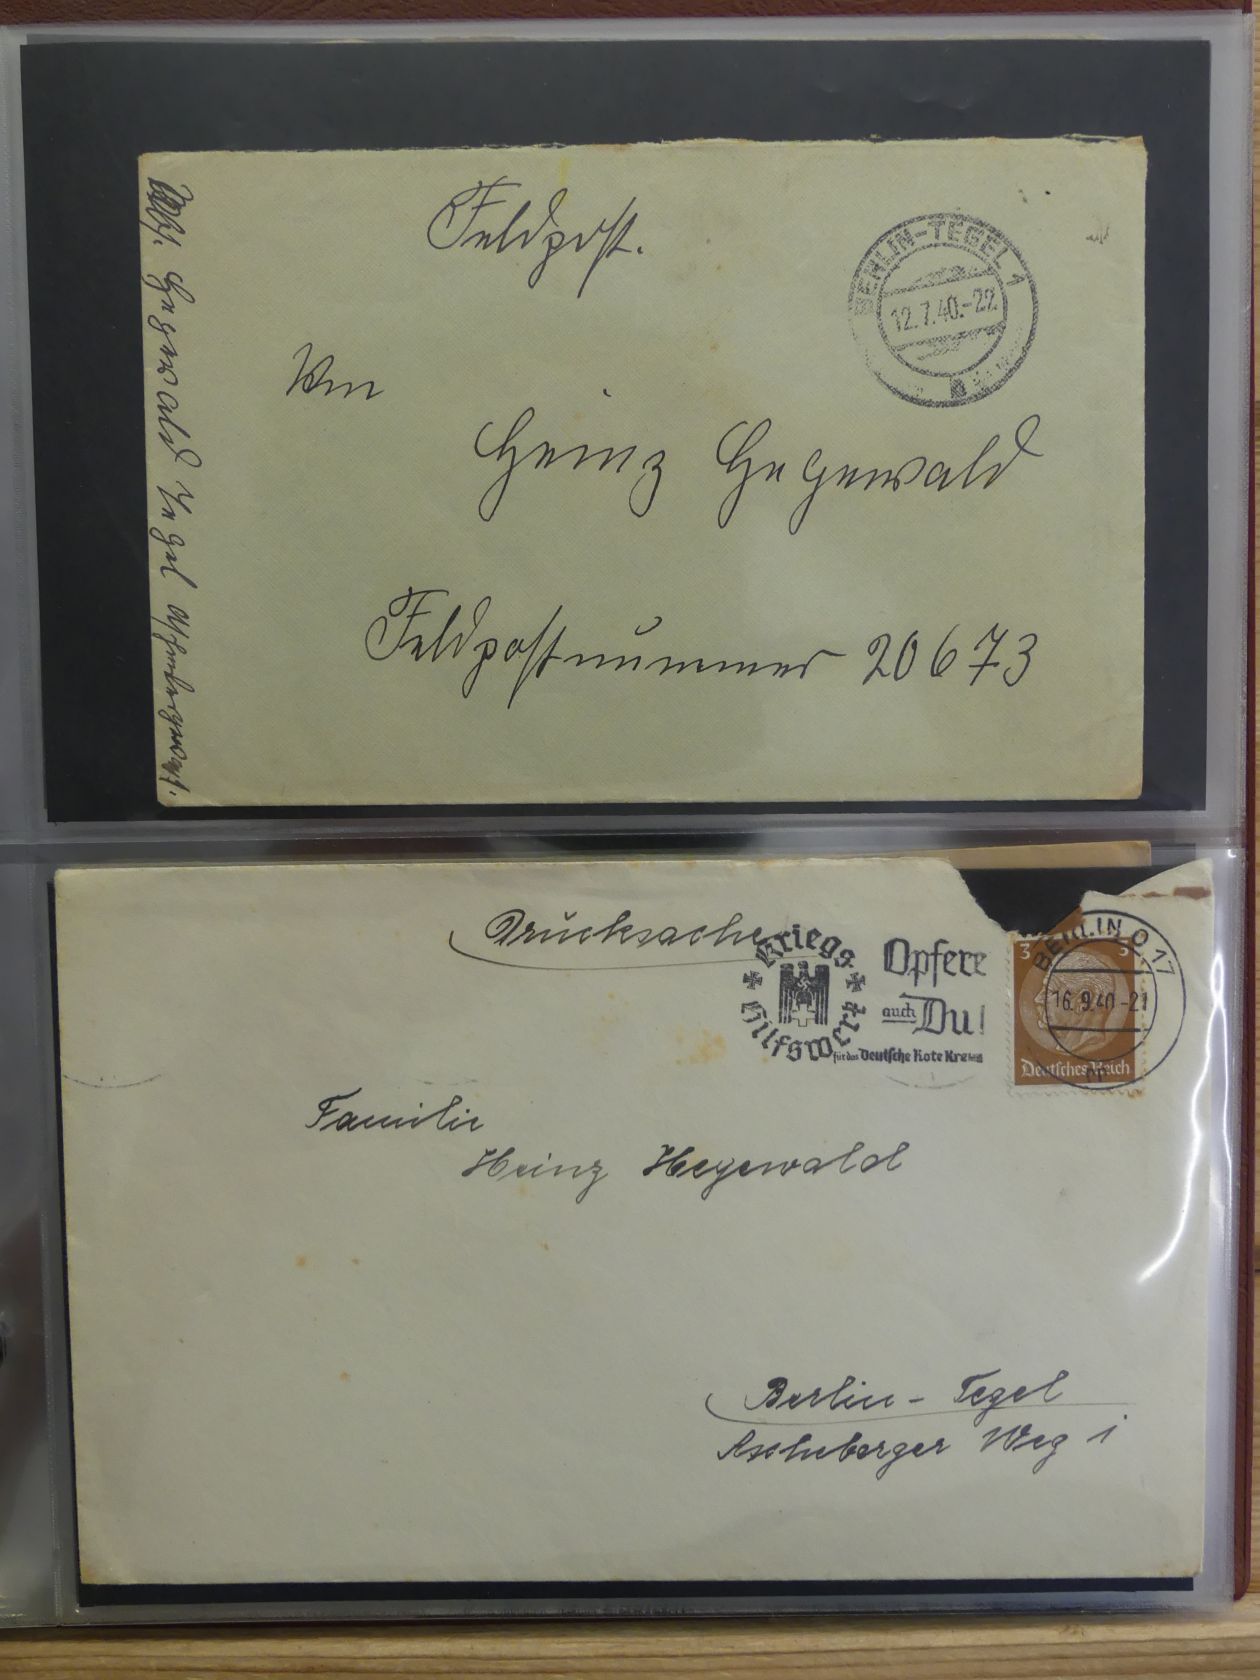 Feldpost.
BERLIN-TEGEL 1
12.7.40.-22
An
Heinz Hegewald
Feldpostnummer 20673
Abs. Hegewald Tegel Aschebergerweg 1.
Drucksache
Kriegs
Hilfswerk
Opfere
auch Du!
für das Deutsche Rote Kreuz
BERLIN O 17
16.9.40-21
3 3
Deutsches Reich
Familie
Heinz Hegewald
Berlin-Tegel
Ascheberger Weg 1